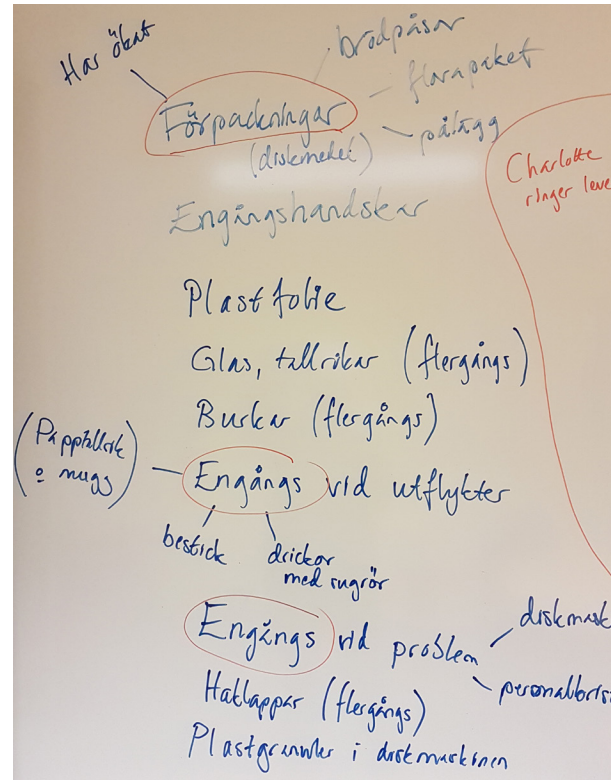 Har ökat
brödpåsar
Förpackningar
florapaket
(diskmedel)
pålägg
Charlotte
ringer leve
Engångshandskar
Plastfolie
Glas, tallrikar (flergångs)
Burkar (flergångs)
(Papptallrik
o mugg)
Engångs vid utflykter
bestick
drickor
med sugrör
Engångs vid problem
diskmask
personalbris
Haklappar (flergångs)
Plastgranuler i diskmaskinen